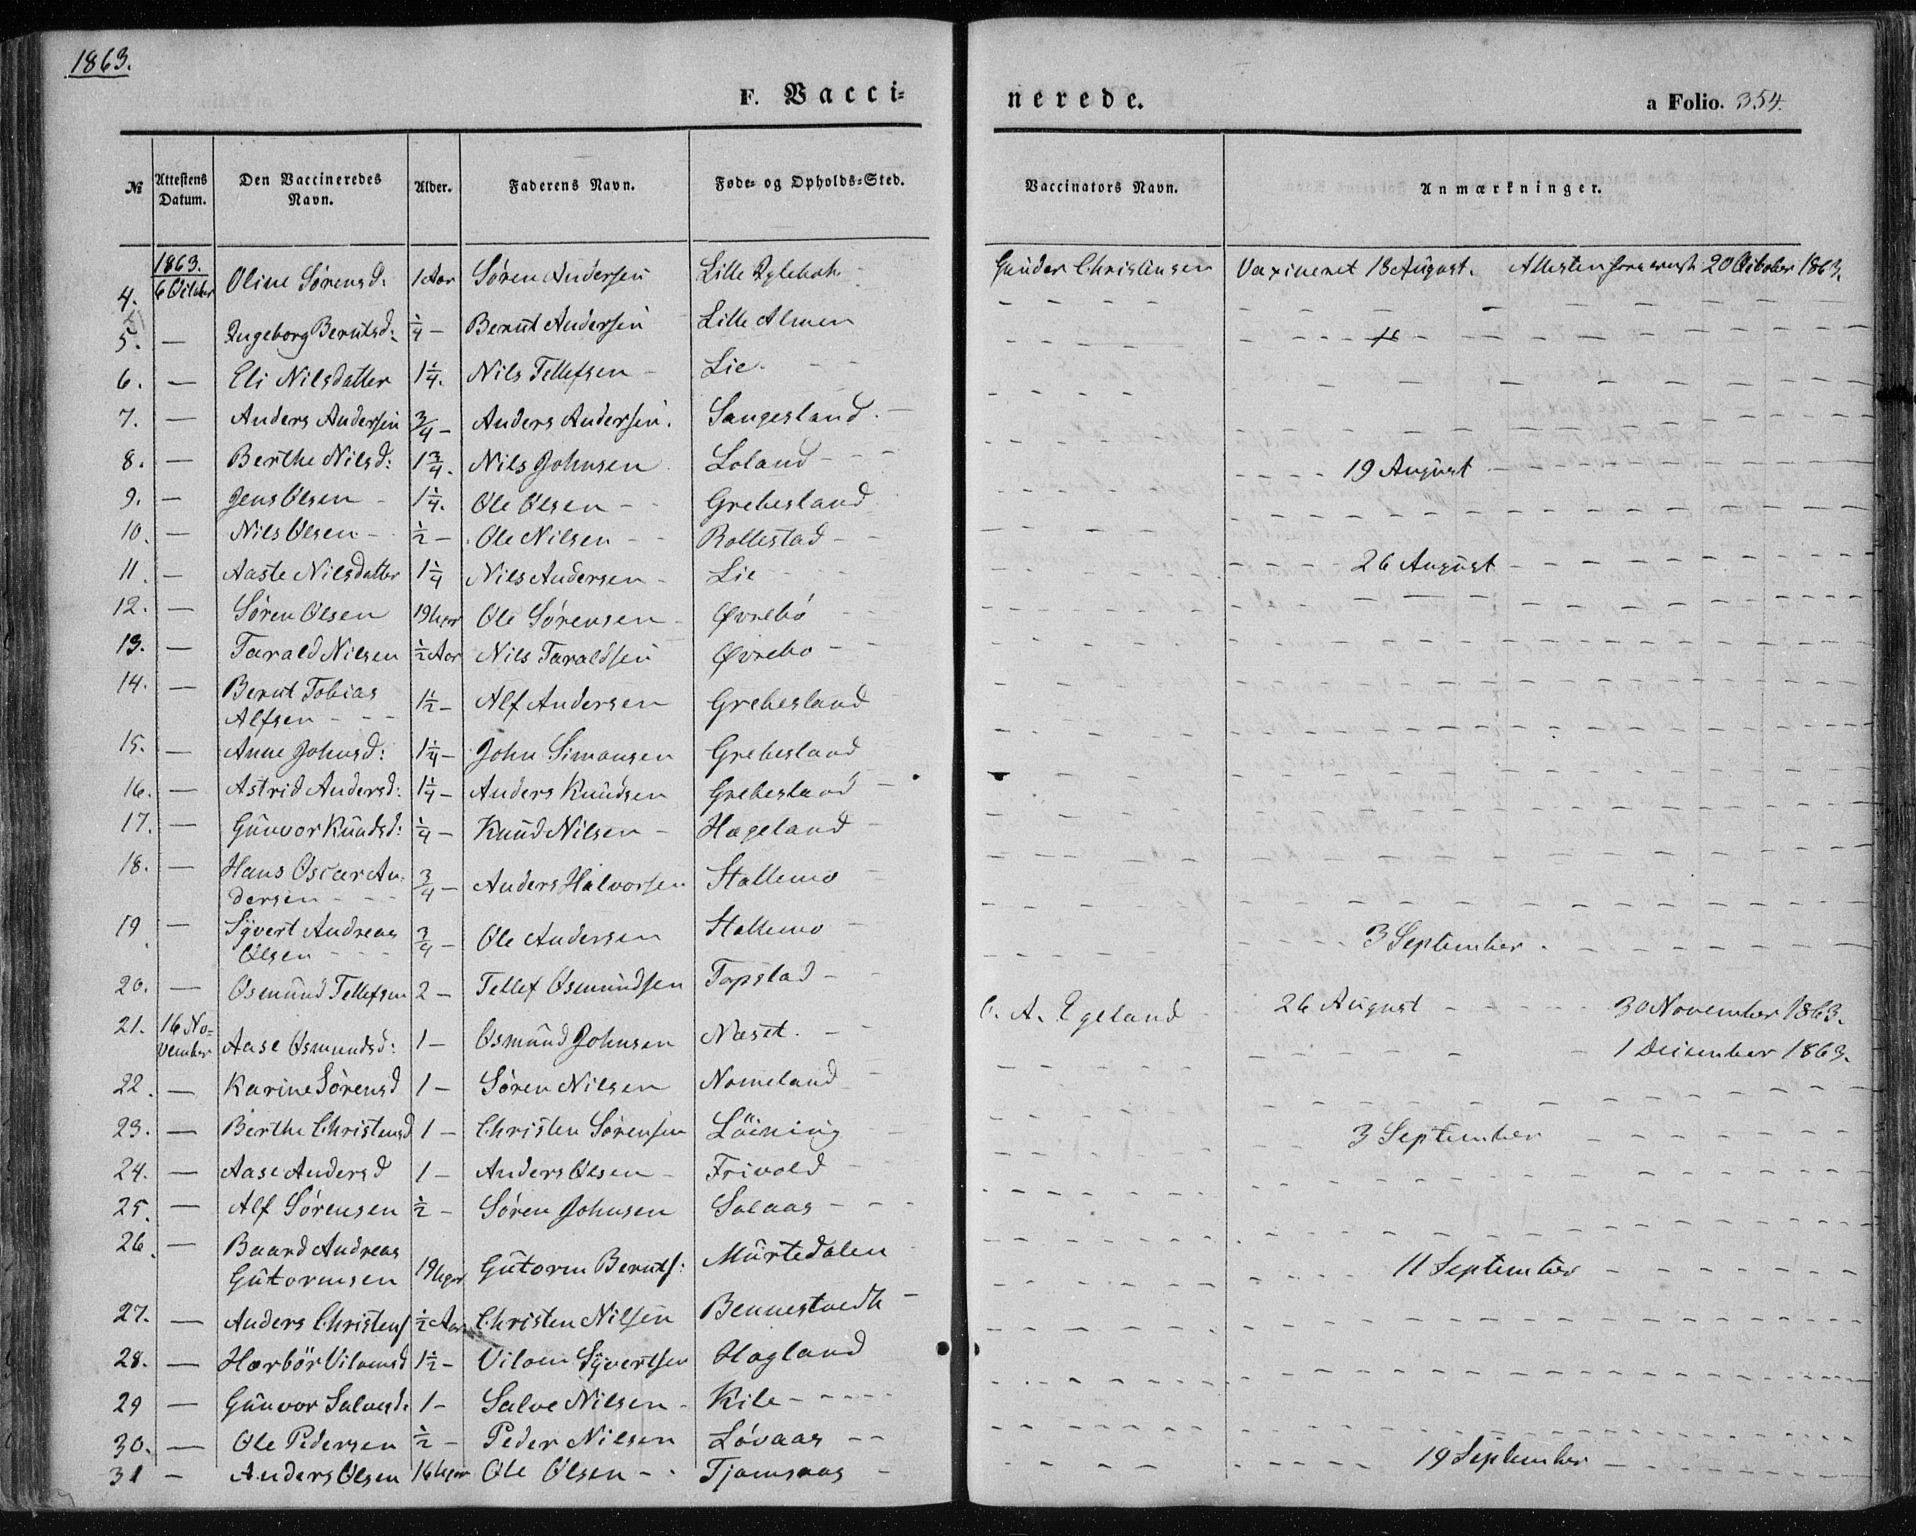 1863.
F. Vacci=
nerede.
a Folio. 354.
№
Attestens Datum.
Den Vaccineredes Navn.
Alder.
Faderens Navn.
Føde- og Opholds-Sted.
Vaccinators Navn.
Anmærkninger.
1863.
4. 6 October Oline Sørensd: 1 Aar Søren Andersen Lille Gunder Christensen Vaxineret 18 August. Attesten 20 October 1863.
5. — Ingeborg Berntsd: 1/4 — Bernt Andersen Lille Almen
6. — Eli Nilsdatter 1 1/4. Nils Tellefsen — Lie.
7. — Anders Andersen 3/4 — Anders Andersen. Sangesland. —
8. — Berthe Nilsd: 1 3/4. Nils Johnsen Loland — — — 19 August
9. — Jens Olsen 1 1/4. Ole Olsen — Grebesland
10. — Nils Olsen — 1/2 — Ole Nilsen — — Rollestad — —
11. — Aaste Nilsdatter 1 1/4 Nils Andersen — Lie — — — 26 August
12. — Søren Olsen 19 Uger Ole Sørensen — Øvrebø
13. — Tarald Nilsen 1/2 Aar Nils Taraldsen Øvrebo —
14. — Bernt Tobias
Alfsen — — — 1 1/2 — Alf Andersen Grebesland
15. — Anne Johnsd: 1 1/4 — John Simonsen Grebesland
16. — Astrid Andersd: 1 1/4 — Anders Knudsen Grebesland —
17. — Gunvor Knudsd: 1/4 — Knud Nilsen — Hageland —
18. — Hans Oscar An-
dersen — — — 3/4 — Anders Halvorsen Stallemo —
19 — Syvert Andreas
Olsen — — — 3/4 — Ole Andersen Stallemo — 3 September.
20. — Osmund Tellefsen 2 — Tellef Osmundsen Topstad — —
21. 16 No-
vember Aase Osmundsd: 1 — Osmund Johnsen Næset. — C. A. Egeland 26 August 30 November 1863.
1 December 1863.
22. — Karine Sørensd 1 — Søren Nilsen Nomeland
23. — Berthe Christensd 1 — Christen Sørensen Löining 3 September
24. — Aase Andersd 1 — Anders Olsen — Frivold
25. — Alf Sørensen 1/2 — Søren Johnsen Solaas — — —
26. — Baard Andreas
Gutormsen 19 Uger Gutorm Bernts: Murtedalen 11 September
27. — Anders Christens 1/2 Aar Christen Nilsen Bennestvedt —
28. — Hærbör Viloms 1 1/2 — Vilom Syvertsen Hagland
29 — Gunvor Salvesd: 1 — Salve Nilsen — Kile — — — —
30. — Ole Pedersen 1/2 — Peder Nilsen Løvaas — — 19 September
31 — Anders Olsen 16 Uger Ole Olsen — — Tjomsaas —